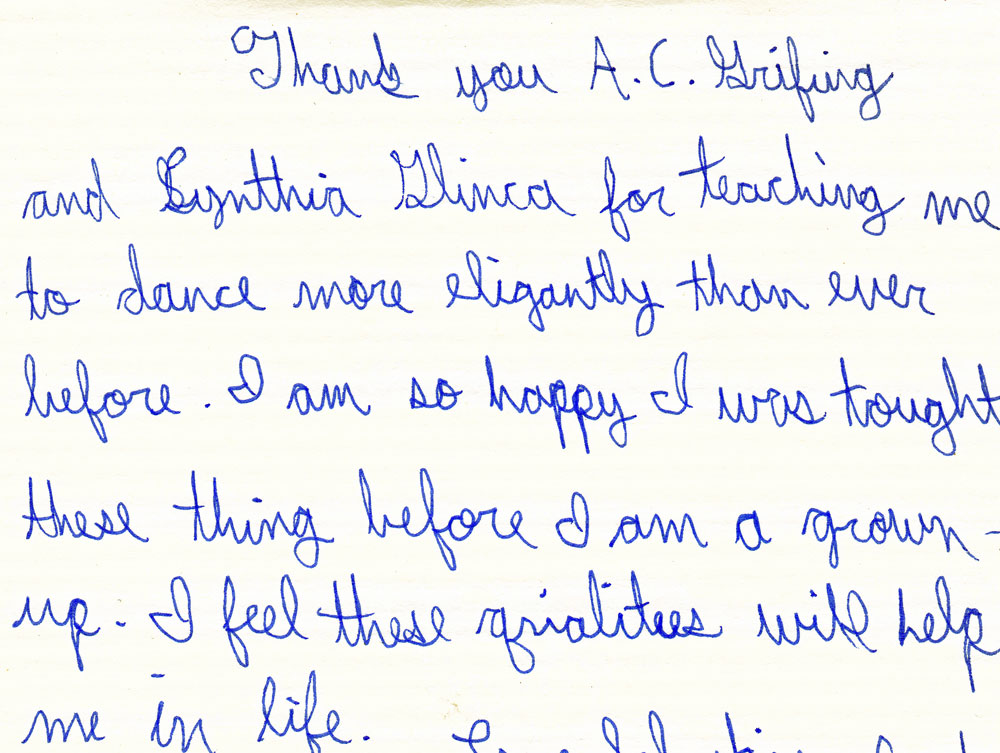 Thank you A.C. Grifing
and Cynthia Glinca for teaching me
to dance more eligantly than ever
before. I am so happy I was tought
these thing before I am a grown-
up. I feel these qrialitees will help
me in life.